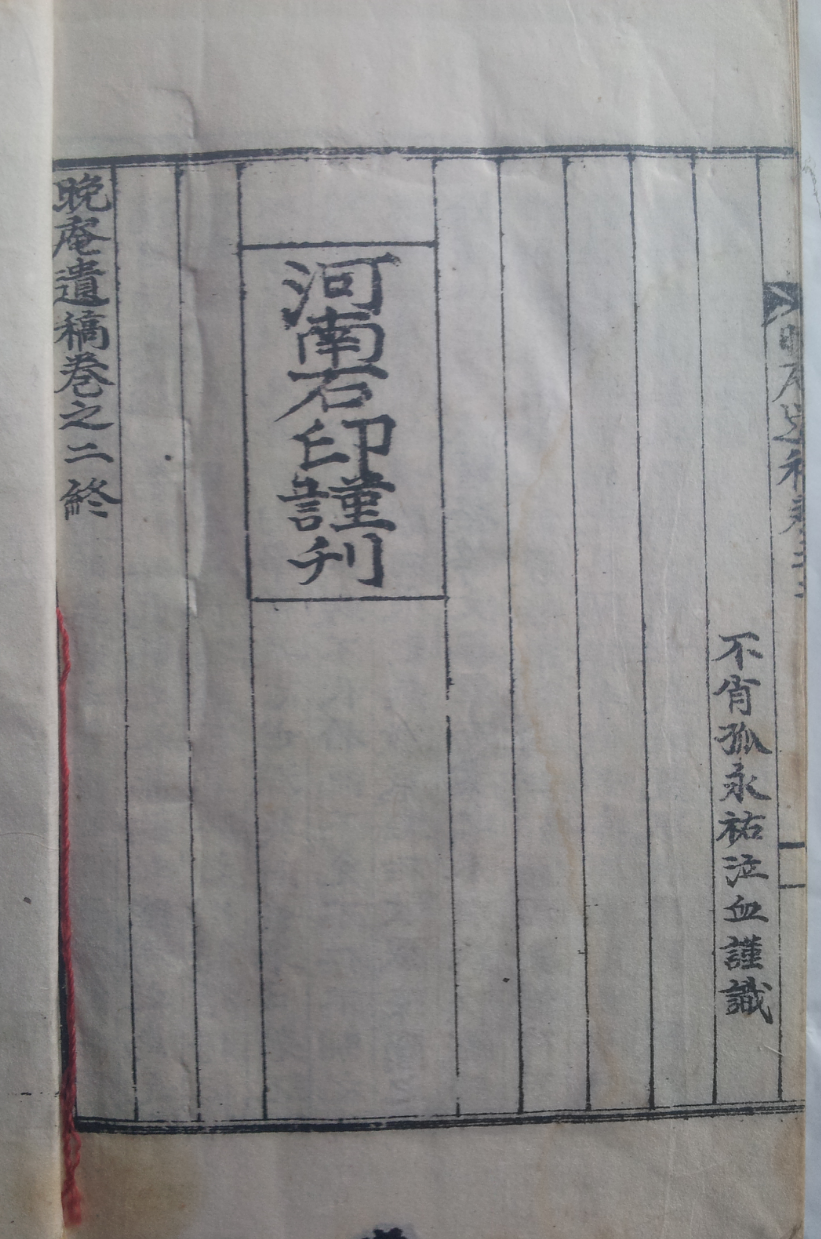 不肖孤永祐泣血謹識
河南石印謹刊
晚庵遺稿卷之二終